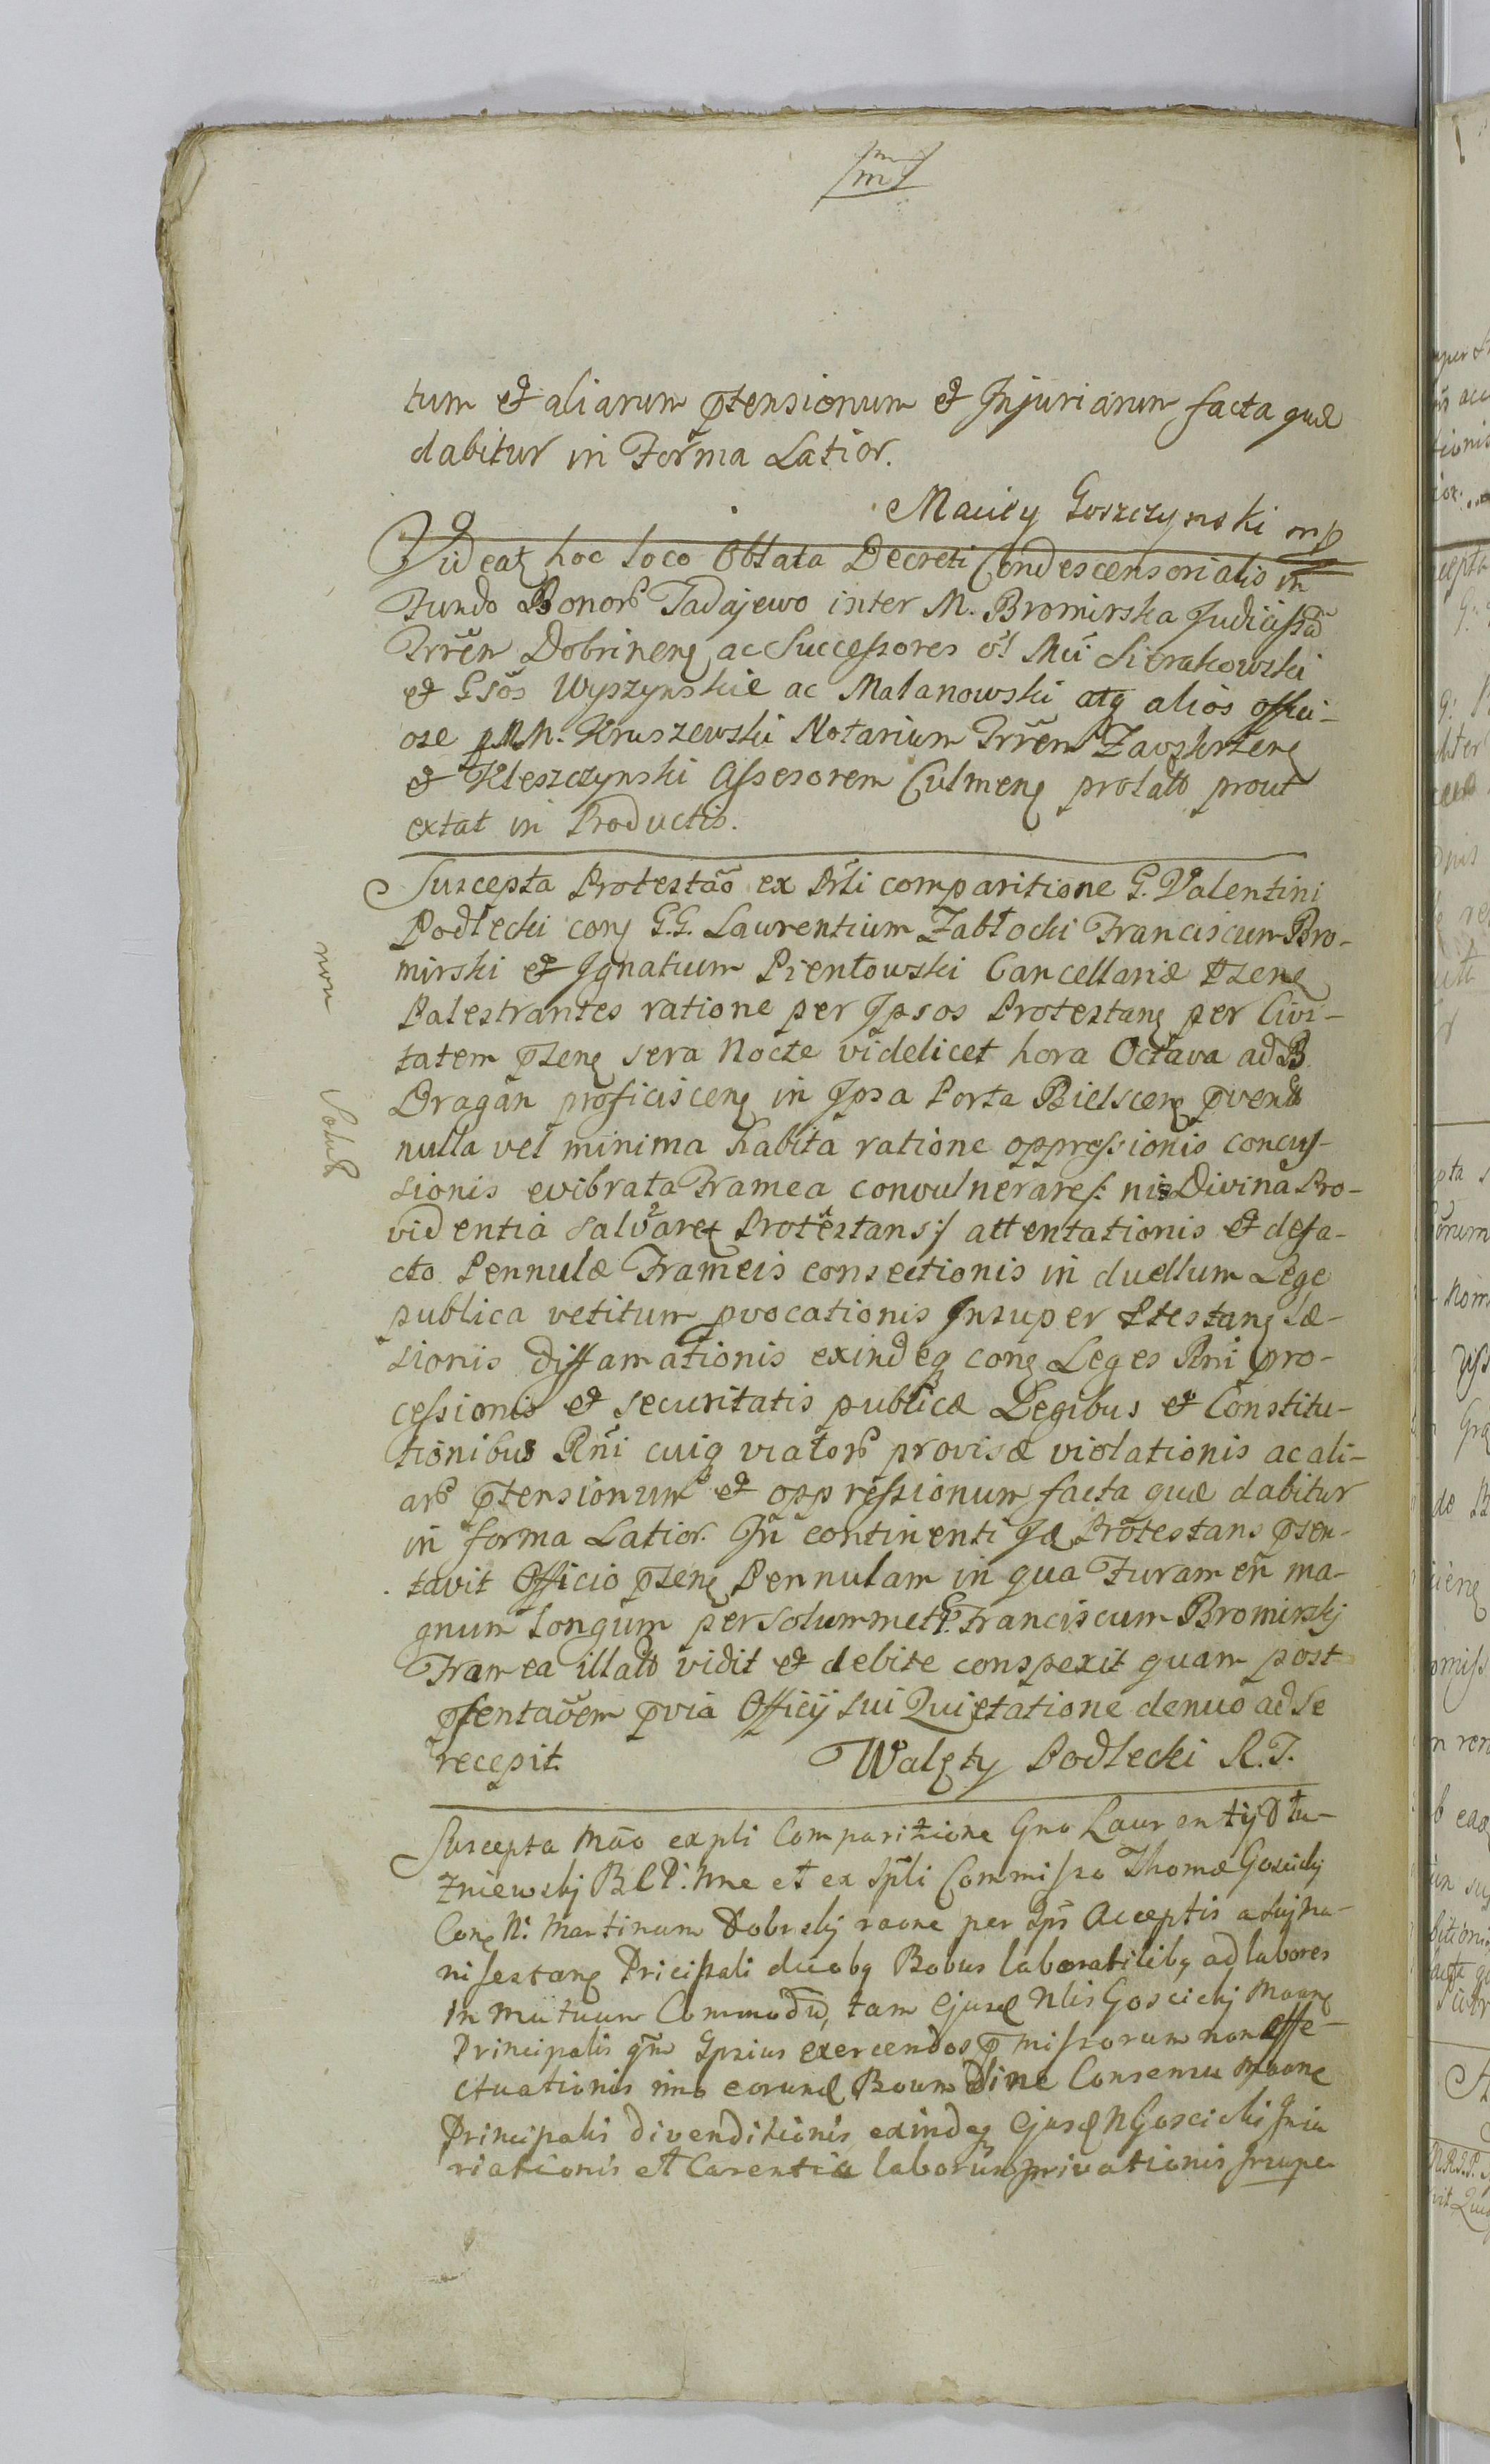 tum et aliarum p̃tensionum et Injuriarum facta quæ
dabitur in Forma Latior.
Maciey Goszczynski mp
Videat hoc loco Oblata Decreti Condescensorialis in
Fundo Bonor Tadajewo inter M. Bromirska Judicissã
Trrẽn Dobrinen ac Successores ol Mci Sierakowski
et Gsos Wyszynskie ac Malanowski atq alios offici-
ose p MM. Kruszewski Notarium Trrẽn Zavskrzen
et Kleszczynski Assesorem Culmen prolato prout
extat in Productis.
Suscepta Protestão ex Prli comparitione G. Valentini
Podlecki con G.G. Laurentium Zabłocki Franciscum Bro-
mirski et Ignatium Pientowski Cancellariæ Psen
Palestrantes ratione per Ipsos Protestan per Civi-
tatem p̃sen sera Nocte videlicet hora Octava ad B.
Dragan proficiscen in Ipsa Porta Bielscen pvento
nulla vel minima habita ratione oppressionis concus-
sionis evibrata Framea convulnerare /: nis Divina Pro-
videntia salvaret Protestans :/ attentationis et defa-
cto Pennulæ Frameis consectionis in duellum Lege
publica vetitum pvocationis Insuper Ptestan Læ-
sionis diffamationis exindeq con Leges Rni pro-
cessionis et securitatis publicæ Legibus et Constitu-
tionibus Rñi cuiq viator provisæ violationis ac ali-
ar p̃tensionum et oppressionum facta quæ dabitur
in forma Latior. In continenti Id Protestans p̃sen-
tavit Officio p̃sen Pennulam in qua Furamen ma-
gnum longum per solummet G. Franciscum Bromirskj
Framea illato vidit et debite conspexit quam post
p̃sentaõem pvia Officij sui Quietatione denuo ad se
recepit. Walęty Podlecki R.T.
non Solut
Suscepta mão ex pli Comparitione Gno Laurentij Dłu-
zniewskj BCP: Nne et ex spli Commisso Thomæ Goscickj
Con N. Martinum Dobrskj raone per Ips Acceptis a suj Ma-
nifestan Pricipali duobq Bobus laboratilibq ad labores
in mutuum Commodũ, tam Ejusd Nlis Goscickj Maan
Principalis qm Ipsius exercendos p̃missorum non effe-
ctuationis imo eorund Boum sine Consensu Maan
Principalis divenditionis exindeq Ejusd N Goscicki Iniu
riationis et Carentia laborum privationis Insuper